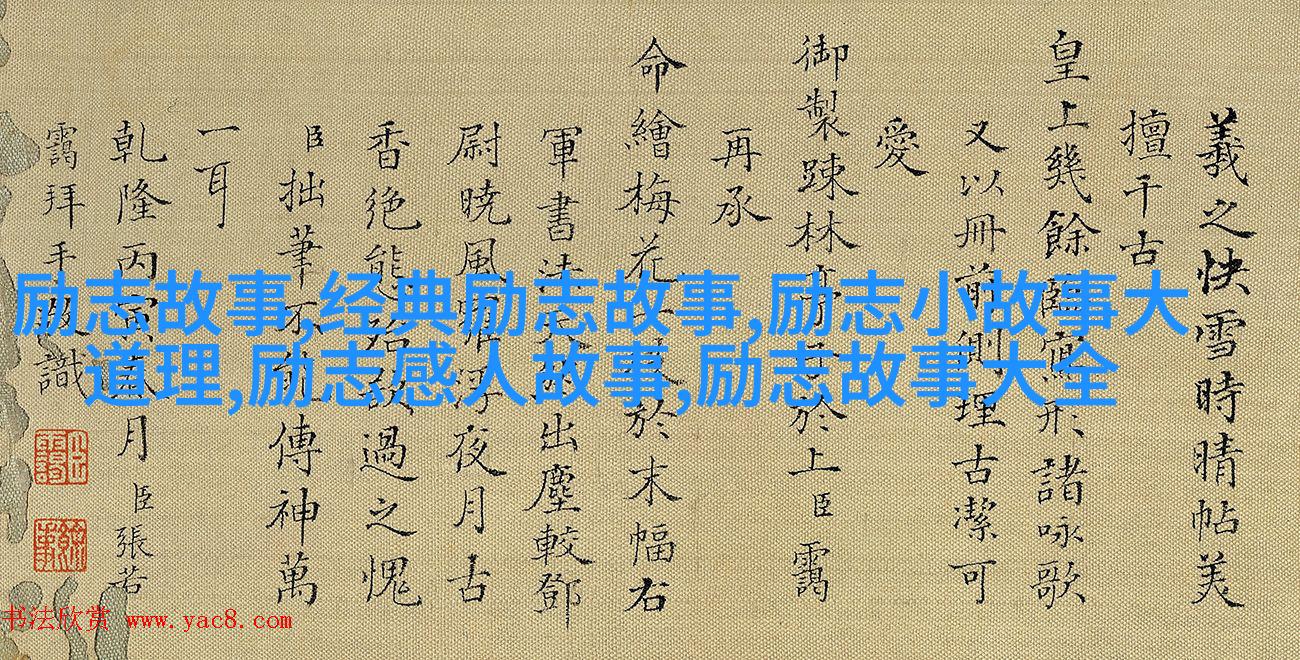 羲之快雪時晴帖美
擅千古
皇上幾餘臨寫形諸咏歌
又以冊前側理古潔可
愛
御製踈林亭子於上臣靄
再承
命繪梅花一枝於末幅右
軍書法出塵較鄧
尉曉風浮夜月古
香絕能過之愧
臣拙筆不能傳神萬
一耳
乾隆丙寅春月臣張若
靄拜手敬識
励志故事,经典励志故事,励志小故事大
道理,励志感人故事,励志故事大全
书法欣赏 www.yac8.com